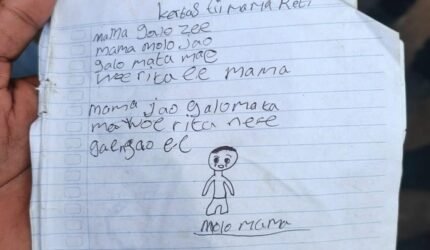 Kobas tii mama Keti
mama galo zee
mama molo jao
galo mata mae
woe rita ee mama
mama jao galo mata
ma woe rita nere
gaengao ee
molo mama